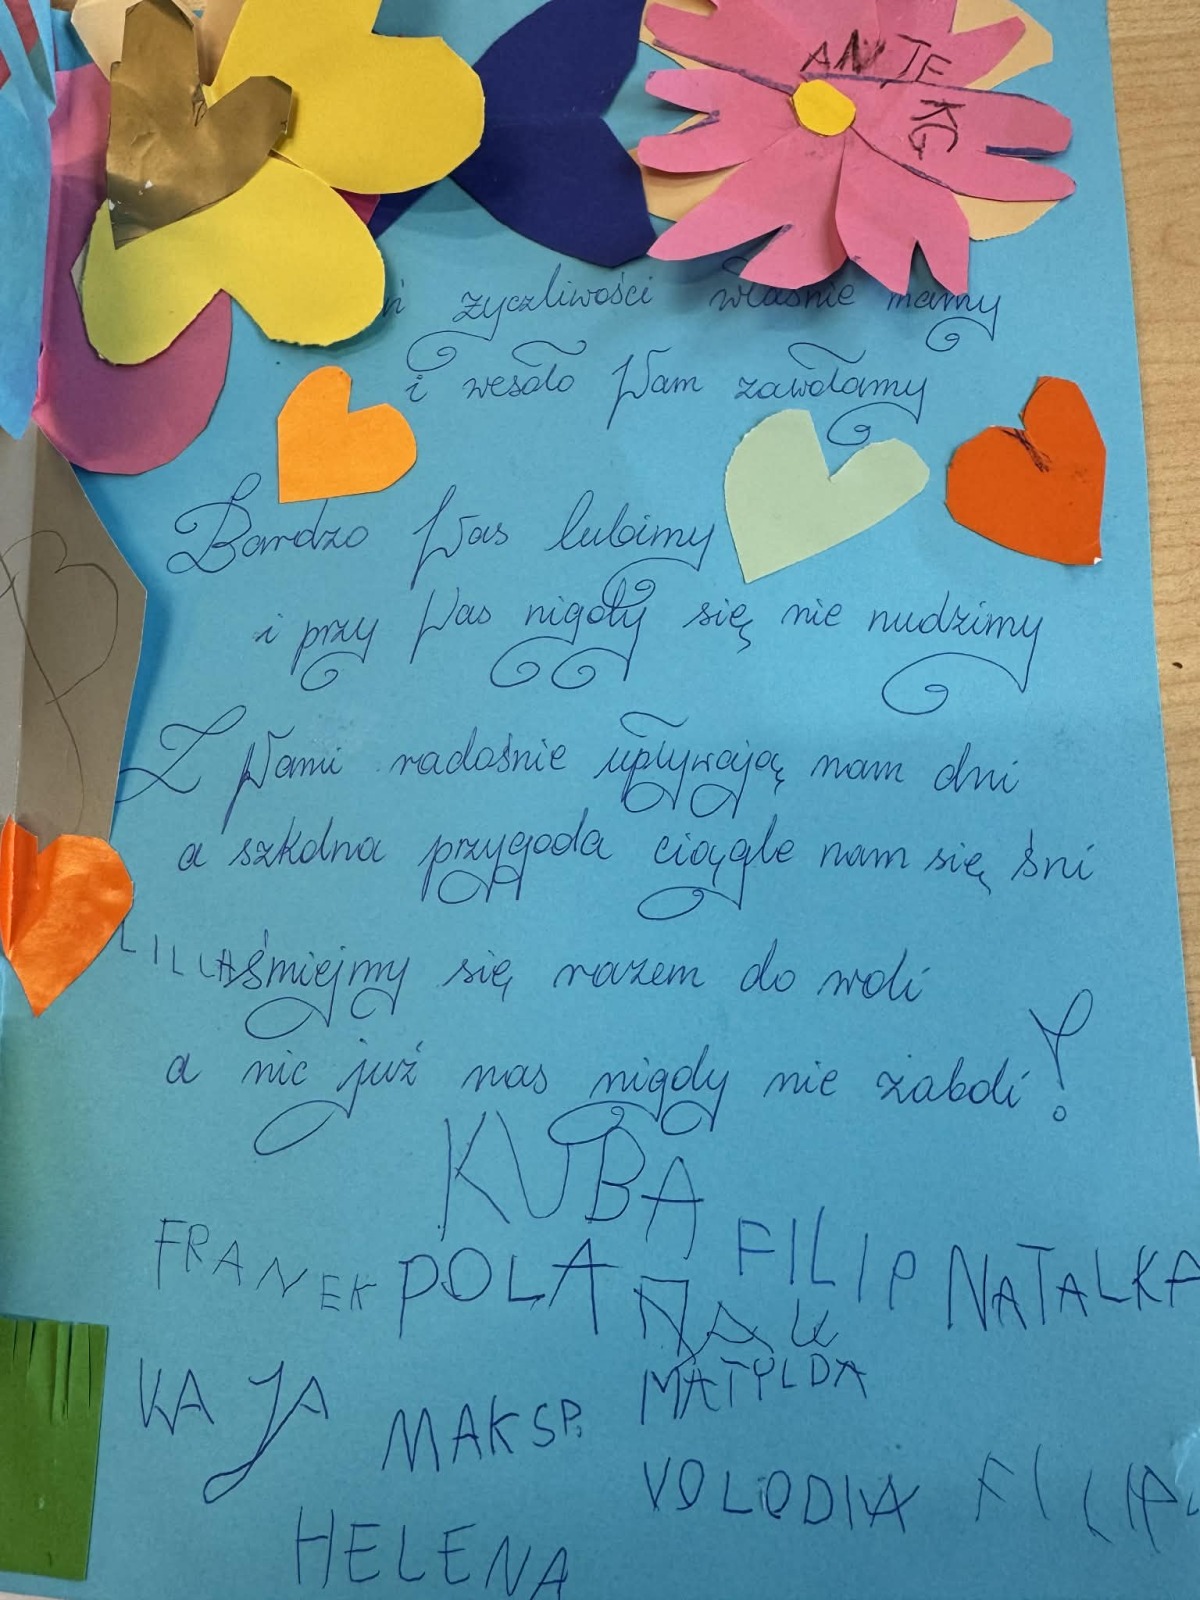 ANTEK G
życzliwości właśnie mamy
i wesoło Wam zawołamy
Bardzo Was lubimy
i przy Was nigdy się nie nudzimy
Z Wami radośnie upływają nam dni
a szkolna przygoda ciągle nam się śni
LILLA śmiejmy się razem do woli
a nic już nas nigdy nie zaboli!
KUBA
FRANEK POLA FILIP NATALKA
MAKS
KAJA MAKS P. MATYLDA
VOLODIA FILIP
HELENA